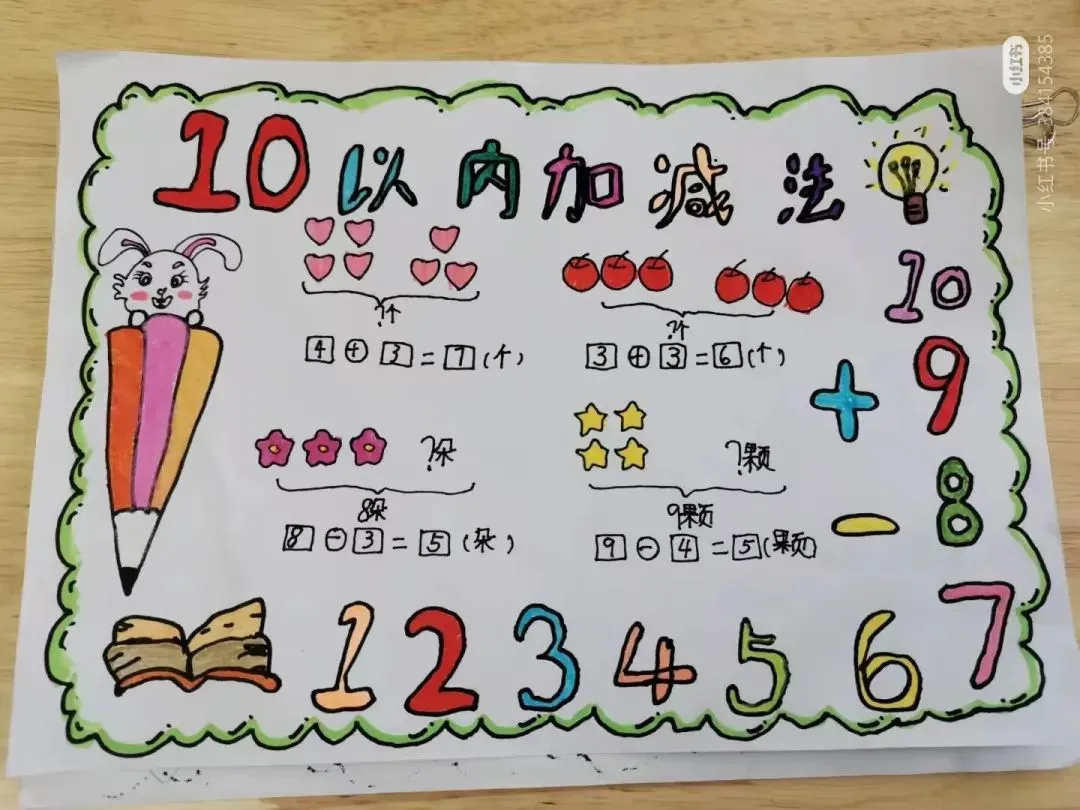 10以内加减法
?个
?个
4 + 3 = 7 (个)
3 + 3 = 6 (个)
?朵
?颗
8朵
9颗
8 - 3 = 5 (朵)
9 - 4 = 5 (颗)
10
9
+
8
-
7
1 2 3 4 5 6
小红书
小红书号 384154385